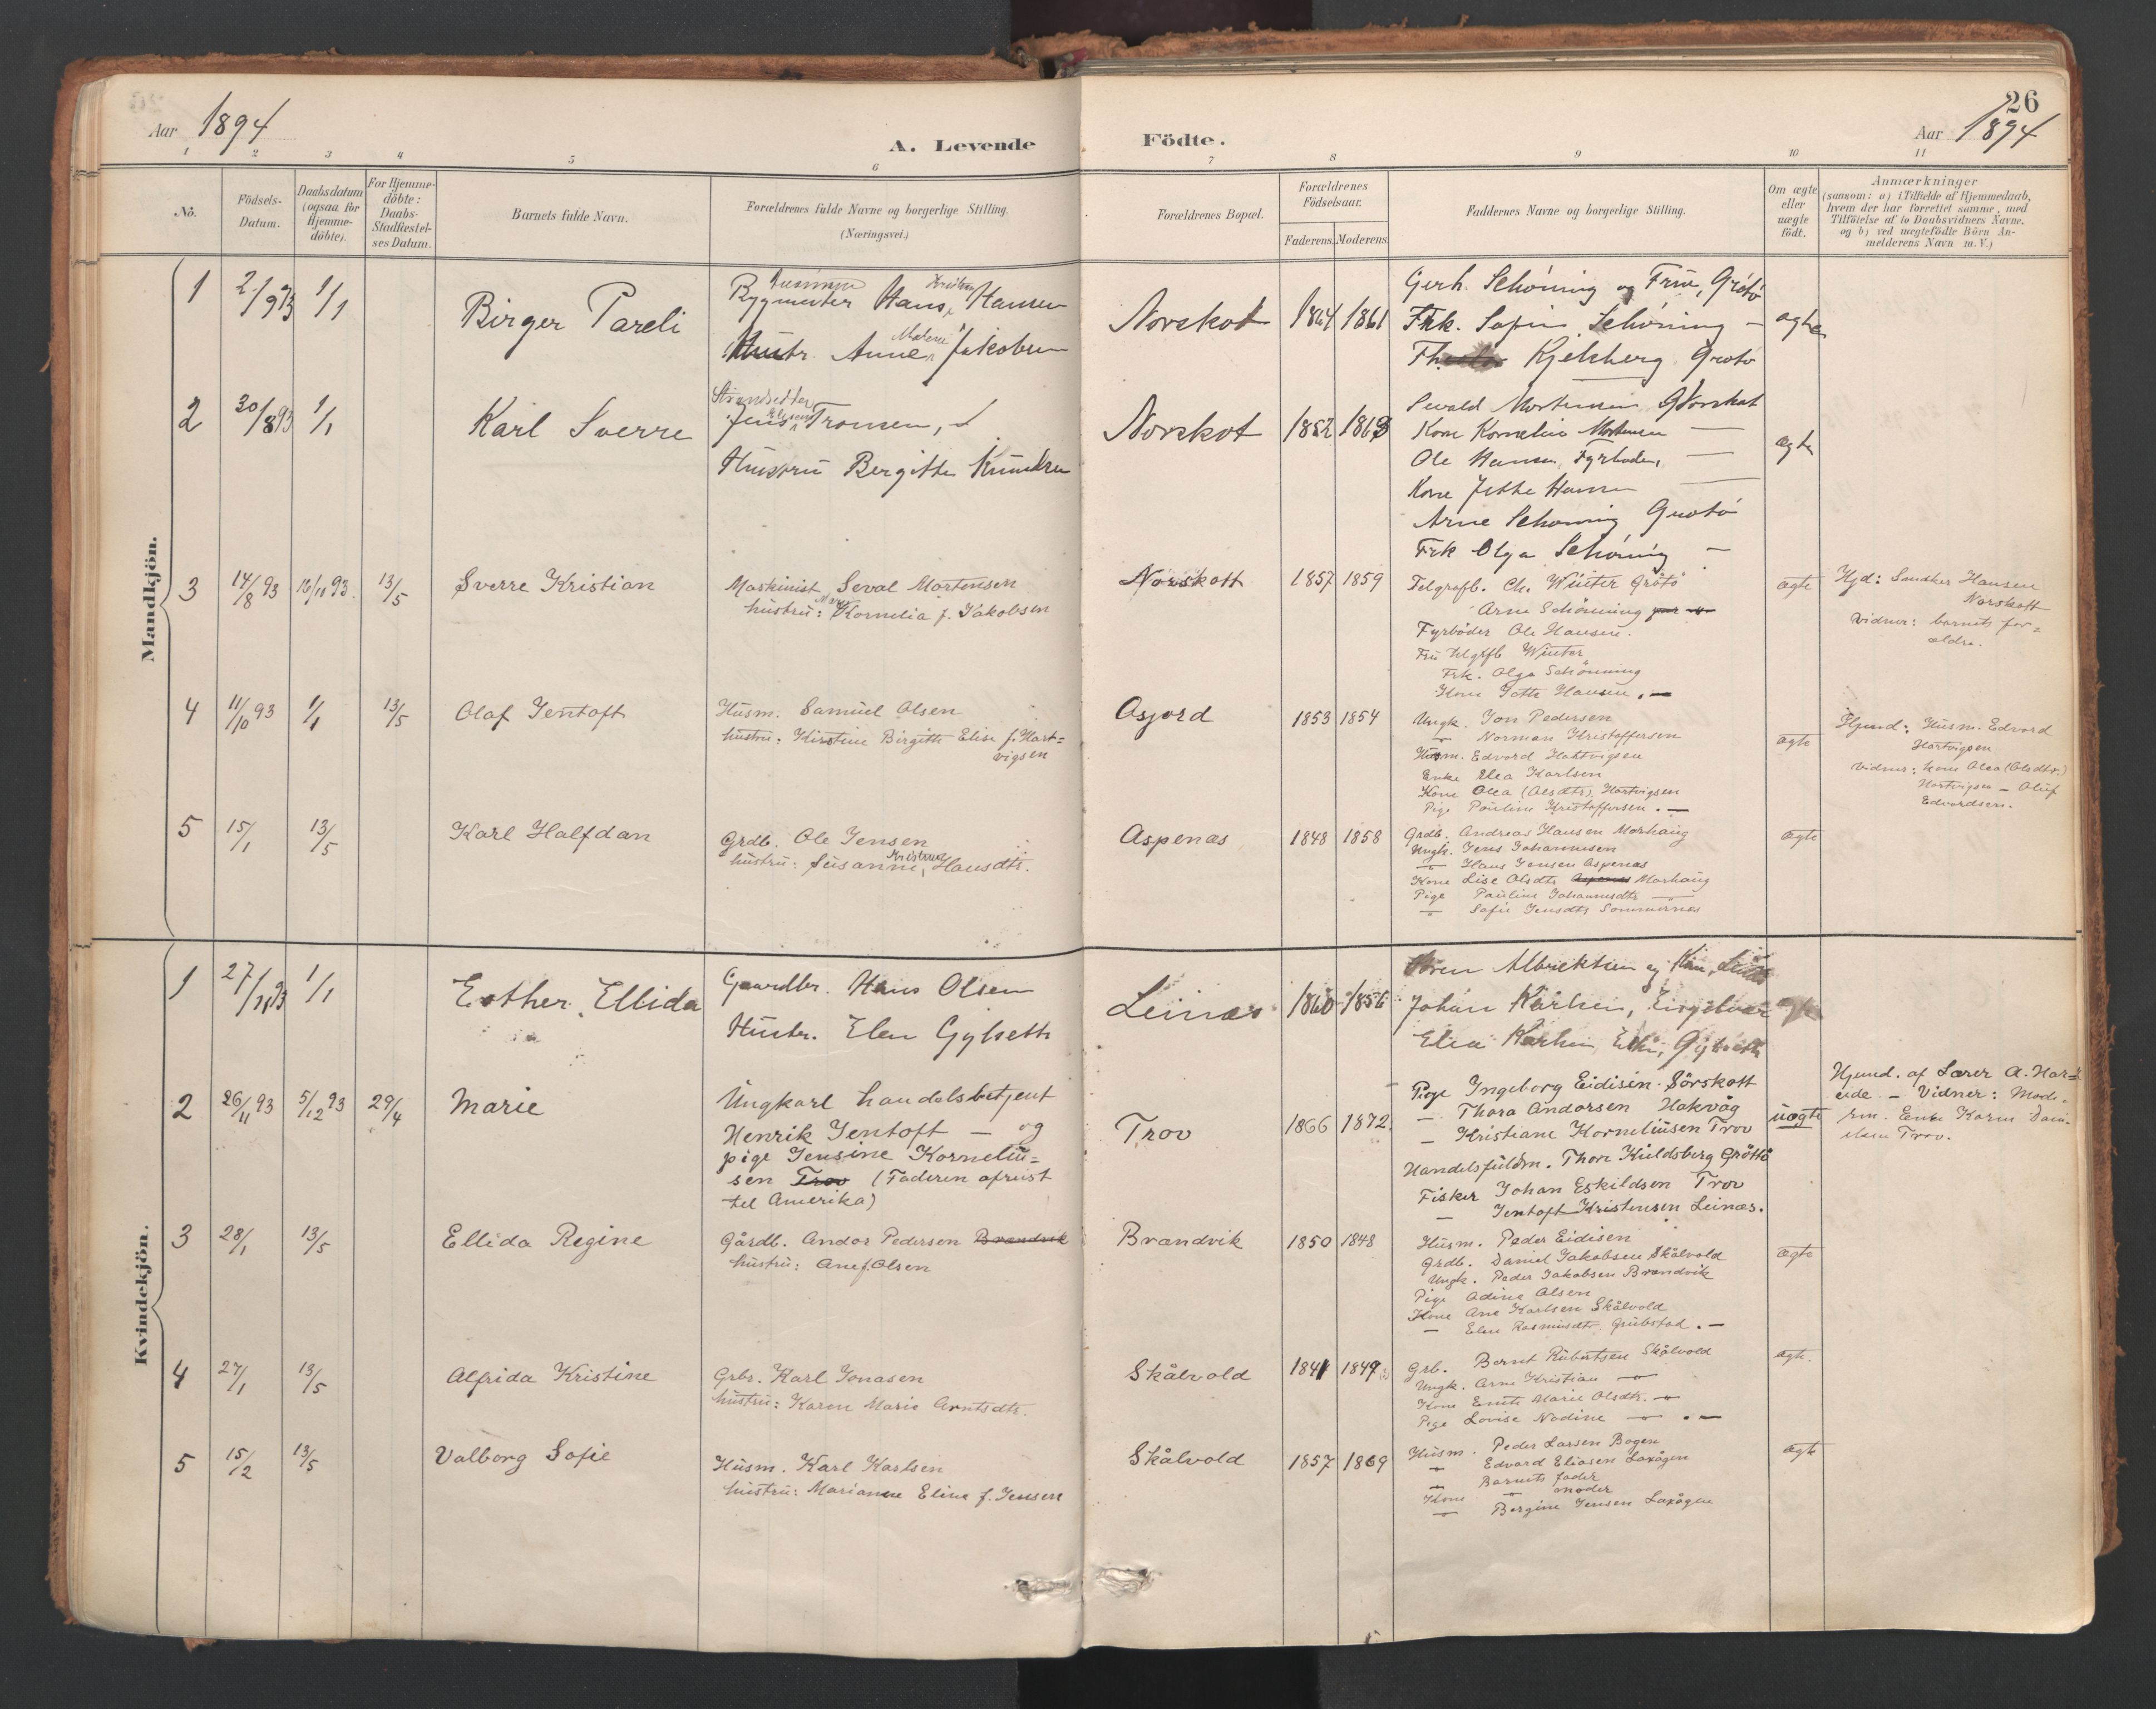 26
Aar 1894
A. Levende Födte.
Aar 1894
1 2 3 4 5 6 7 8 9 10 11
No.
Födsels-Datum.
Daabsdatum (ogsaa for Hjemme-döbte).
For Hjemme-döbte: Daabs-Stadfæstel-ses Datum.
Barnets fulde Navn.
Forældrenes fulde Navne og borgerlige Stilling. (Næringsvei.)
Forældrenes Bopæl.
Forældrenes Födselsaar.
Faderens. Moderens.
Faddernes Navne og borgerlige Stilling.
Om ægte eller uægte födt.
Anmærkninger
(saasom: a) i Tilfælde af Hjemmedaab, hvem der har forrettet samme, med Tilföielse af to Daabsvidners Navne, og b) ved uægtefödte Börn An-melderens Navn m. V.)
Mandkjön.
1 2/9 93 1/1
Birger Pareli
Bygmester Hans Kristian Hansen
Hustr. Anne Jakobsen
Norskot 1864 1861
Gerh. Schöning og Frue, Grötö
Frk. Sofie Schöning —
Kjelsberg Grötö
ægte
2 30/8 93 1/1
Karl Sverre
Strandsidder
Jens Tromsen,
Hustru Bergitte
Norskot 1852 1863
Sevald Mortensen Norskot
Kone Kornelia Mortensen —
Ole Hansen, Fyrböder, —
Kone Jette Hansen —
Arne Schöning Grotö
Frk Olga Schöning —
ægte
3 14/8 93 10/10 93. 13/5
Sverre Kristian
Maskinist Seval Mortensen
hustru: Kornelia f. Jakobsen
Norskott 1857 1859
Telgrafb. Ch. Winter Grötö
Arne Schönning
Fyrböder Ole Hansen.
Fru Telgrfb Winter
Frk. Olga Schönning
Kone Jette Hansen. —
ægte
Hjd: Snedker Hansen
Norskott
Vidner: barnets for=
ældre.
4 11/10 93 1/1 13/5
Olaf Jentoft
Husm. Samuel Olsen
hustru: Kirstine Birgitte Elise f. Hart=
vigsen
Asjord 1853 1854
Ungk. Jon Pedersen
— Norman Kristoffersen
Husm. Edvard Hartvigsen
Enke Elea Karlsen
Kone Olea (Olsdtr.) Hartvigsen
Pige Pauline Kristoffersen. —
ægte
Hjemd: Husm. Edvard
Hartvigsen
Vidner: kone Olea (Olsdtr.)
Hartvigsen — Oluf
Edvardsen.
5 15/1 13/5
Karl Halfdan
Grdb. Ole Jensen
hustru: Susanne Kristine Hansdtr.
Aspenæs 1848 1858
Grdb. Andreas Hansen Morhaug
Ungk. Jens Johannesen
— Hans Jensen Aspenæs
Kone Lise Olsdtr Aspenæs Morhaug
Pige Pauline Johannesdtr —
— Sofie Jensdtr Sommernæs
ægte
Kvindekjön.
1 27/11 93 1/1
Esther Ellida
Gaardbr. Hans Olsen
Hustr. Elen Gylseth
Leinæs 1860 1856
Sören Albrektsen og Kone, Leinæs
Johan Karlsen, Engelvær
Elea Karlsen
2 26/11 93 5/12 93 29/4
Marie
Ungkarl handelsbetjent
Henrik Jentoft — og
pige Jensine Korneliu=
sen Trov (Faderen afreist
til Amerika)
Trov 1866 1872.
Pige Ingeborg Eidisen Sörskott
— Thora Andorsen Hakvåg
— Kristiane Korneliusen Trov
Handelsfuldm. Thore Kieldsberg Gröttö
Fisker Johan Eskildsen Trov
— Jentoft Kristensen Leinæs.
uægte
Hjemd. af Lærer A. Har=
eide — Vidner: Mode-
ren. Enke Karen Dani-
elsen Trov.
3 28/1 13/5
Ellida Regine
Gårdb. Andor Pedersen Brandvik
hustru: Ane f. Olsen
Brandvik 1850 1848
Husm. Peder Eidisen
Grdb. Daniel Jakobsen Skålvold
Ungk. Peder Jakobsen Brandvik
Pige Adine Olsen
Kone Ane Karlsen Skålvold
— Elen Rasmusdtr. Grübstad. —
ægte
4 27/1 13/5
Alfrida Kristine
Grbr. Karl Jonasen
hustru: Karen Marie Arntsdtr.
Skålvold 1841 1849
Grb. Bernt Robertsen Skålvold
Ungk. Arne Kristian —
Kone Emte Marie Olsdtr. —
Pige Lovise Nadine — . —
ægte.
5 15/2 13/5
Valborg Sofie
Husm. Karl Karlsen
hustru: Marianne Eline f. Jensen
Skålvold 1857 1869
Husm. Peder Larsen Bogen
— Edvard Eliasen Laxågen
— Barnets fader
Kone — moder
— Bergine Jensen Laxågen
ægte